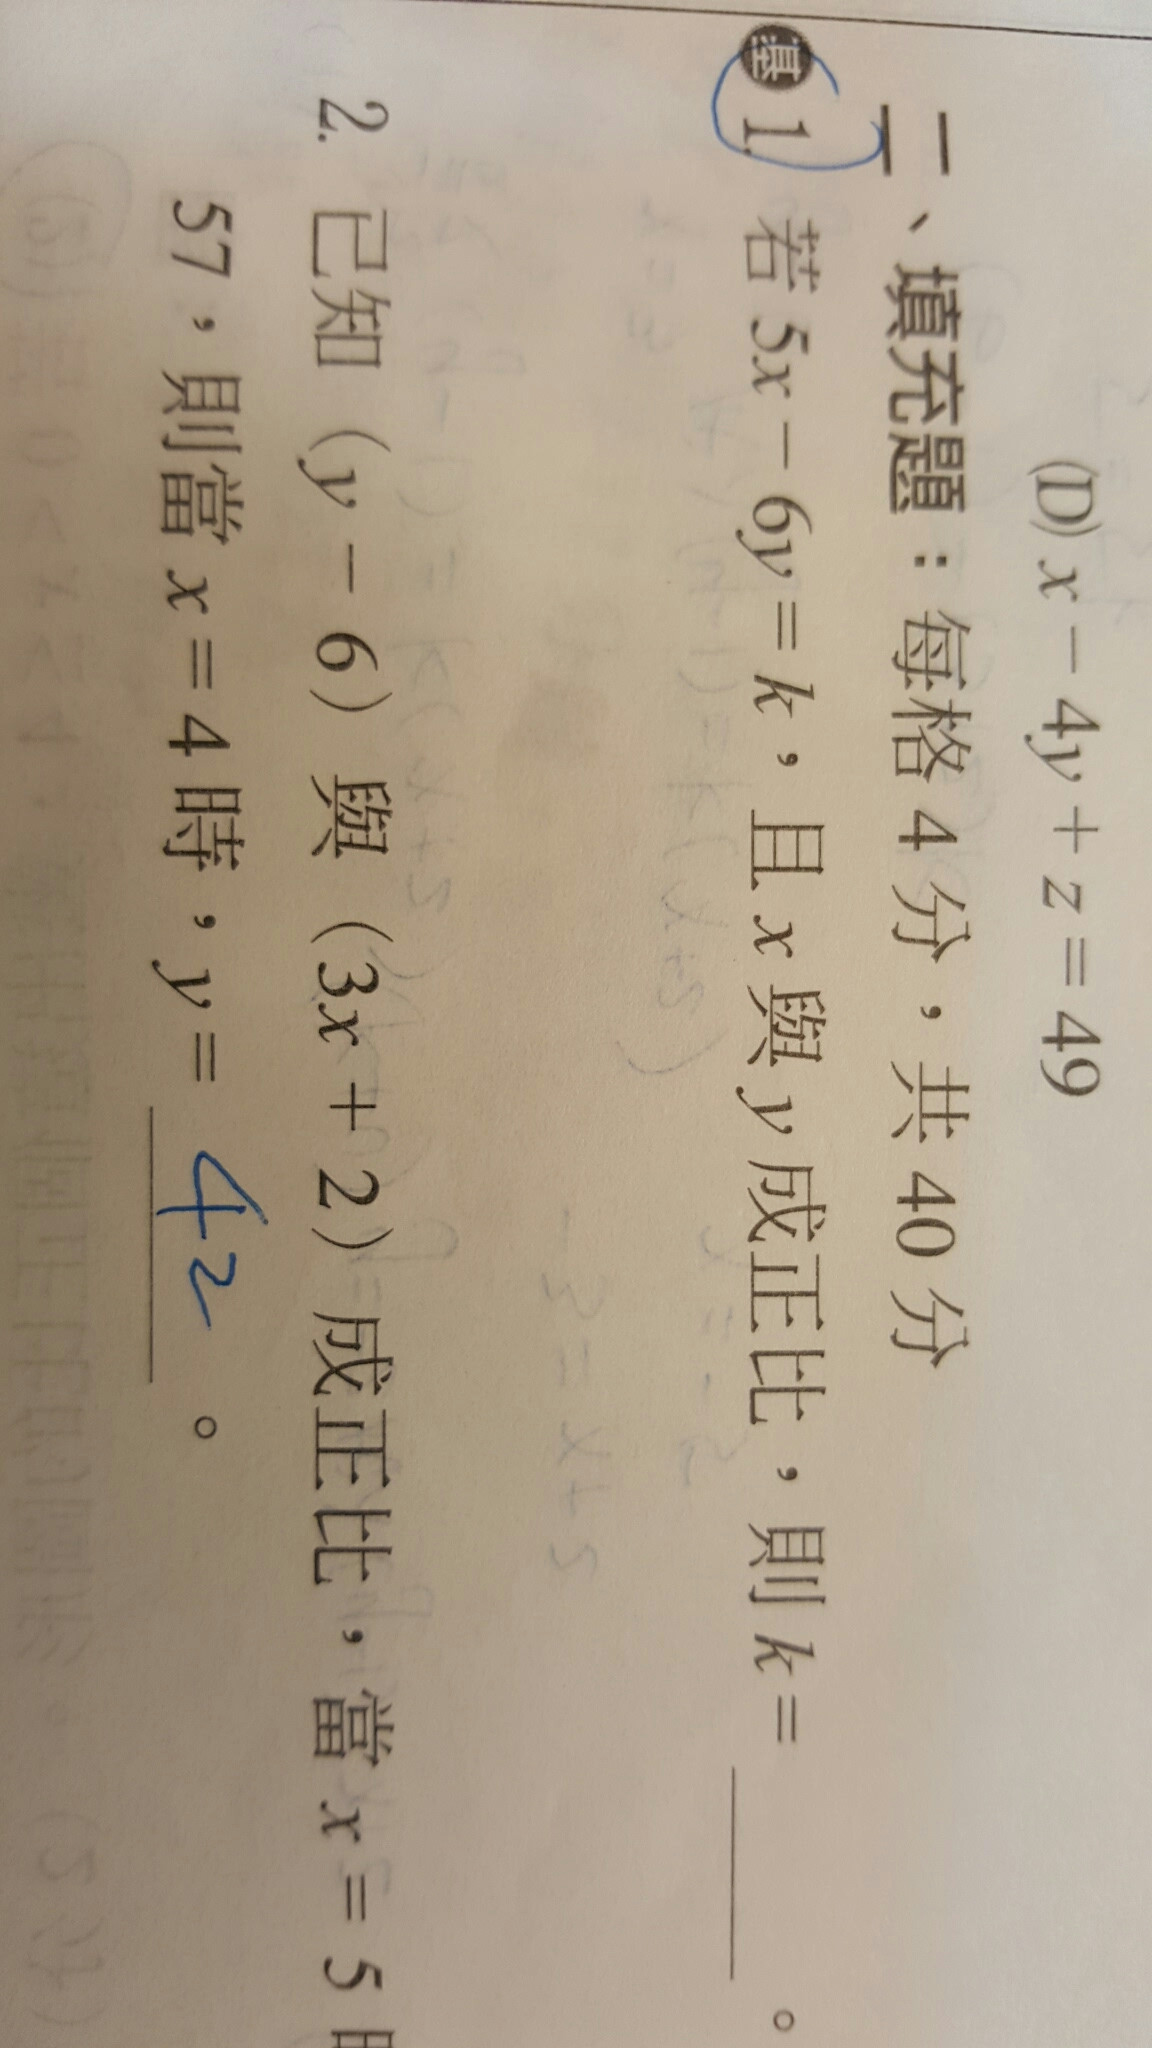 (D) x − 4y + z = 49
二、填充題：每格 4 分，共 40 分
基 1. 若 5x − 6y = k，且 x 與 y 成正比，則 k = ＿＿＿。
2. 已知（y − 6）與（3x + 2）成正比，當 x = 5
57，則當 x = 4 時，y = 42。